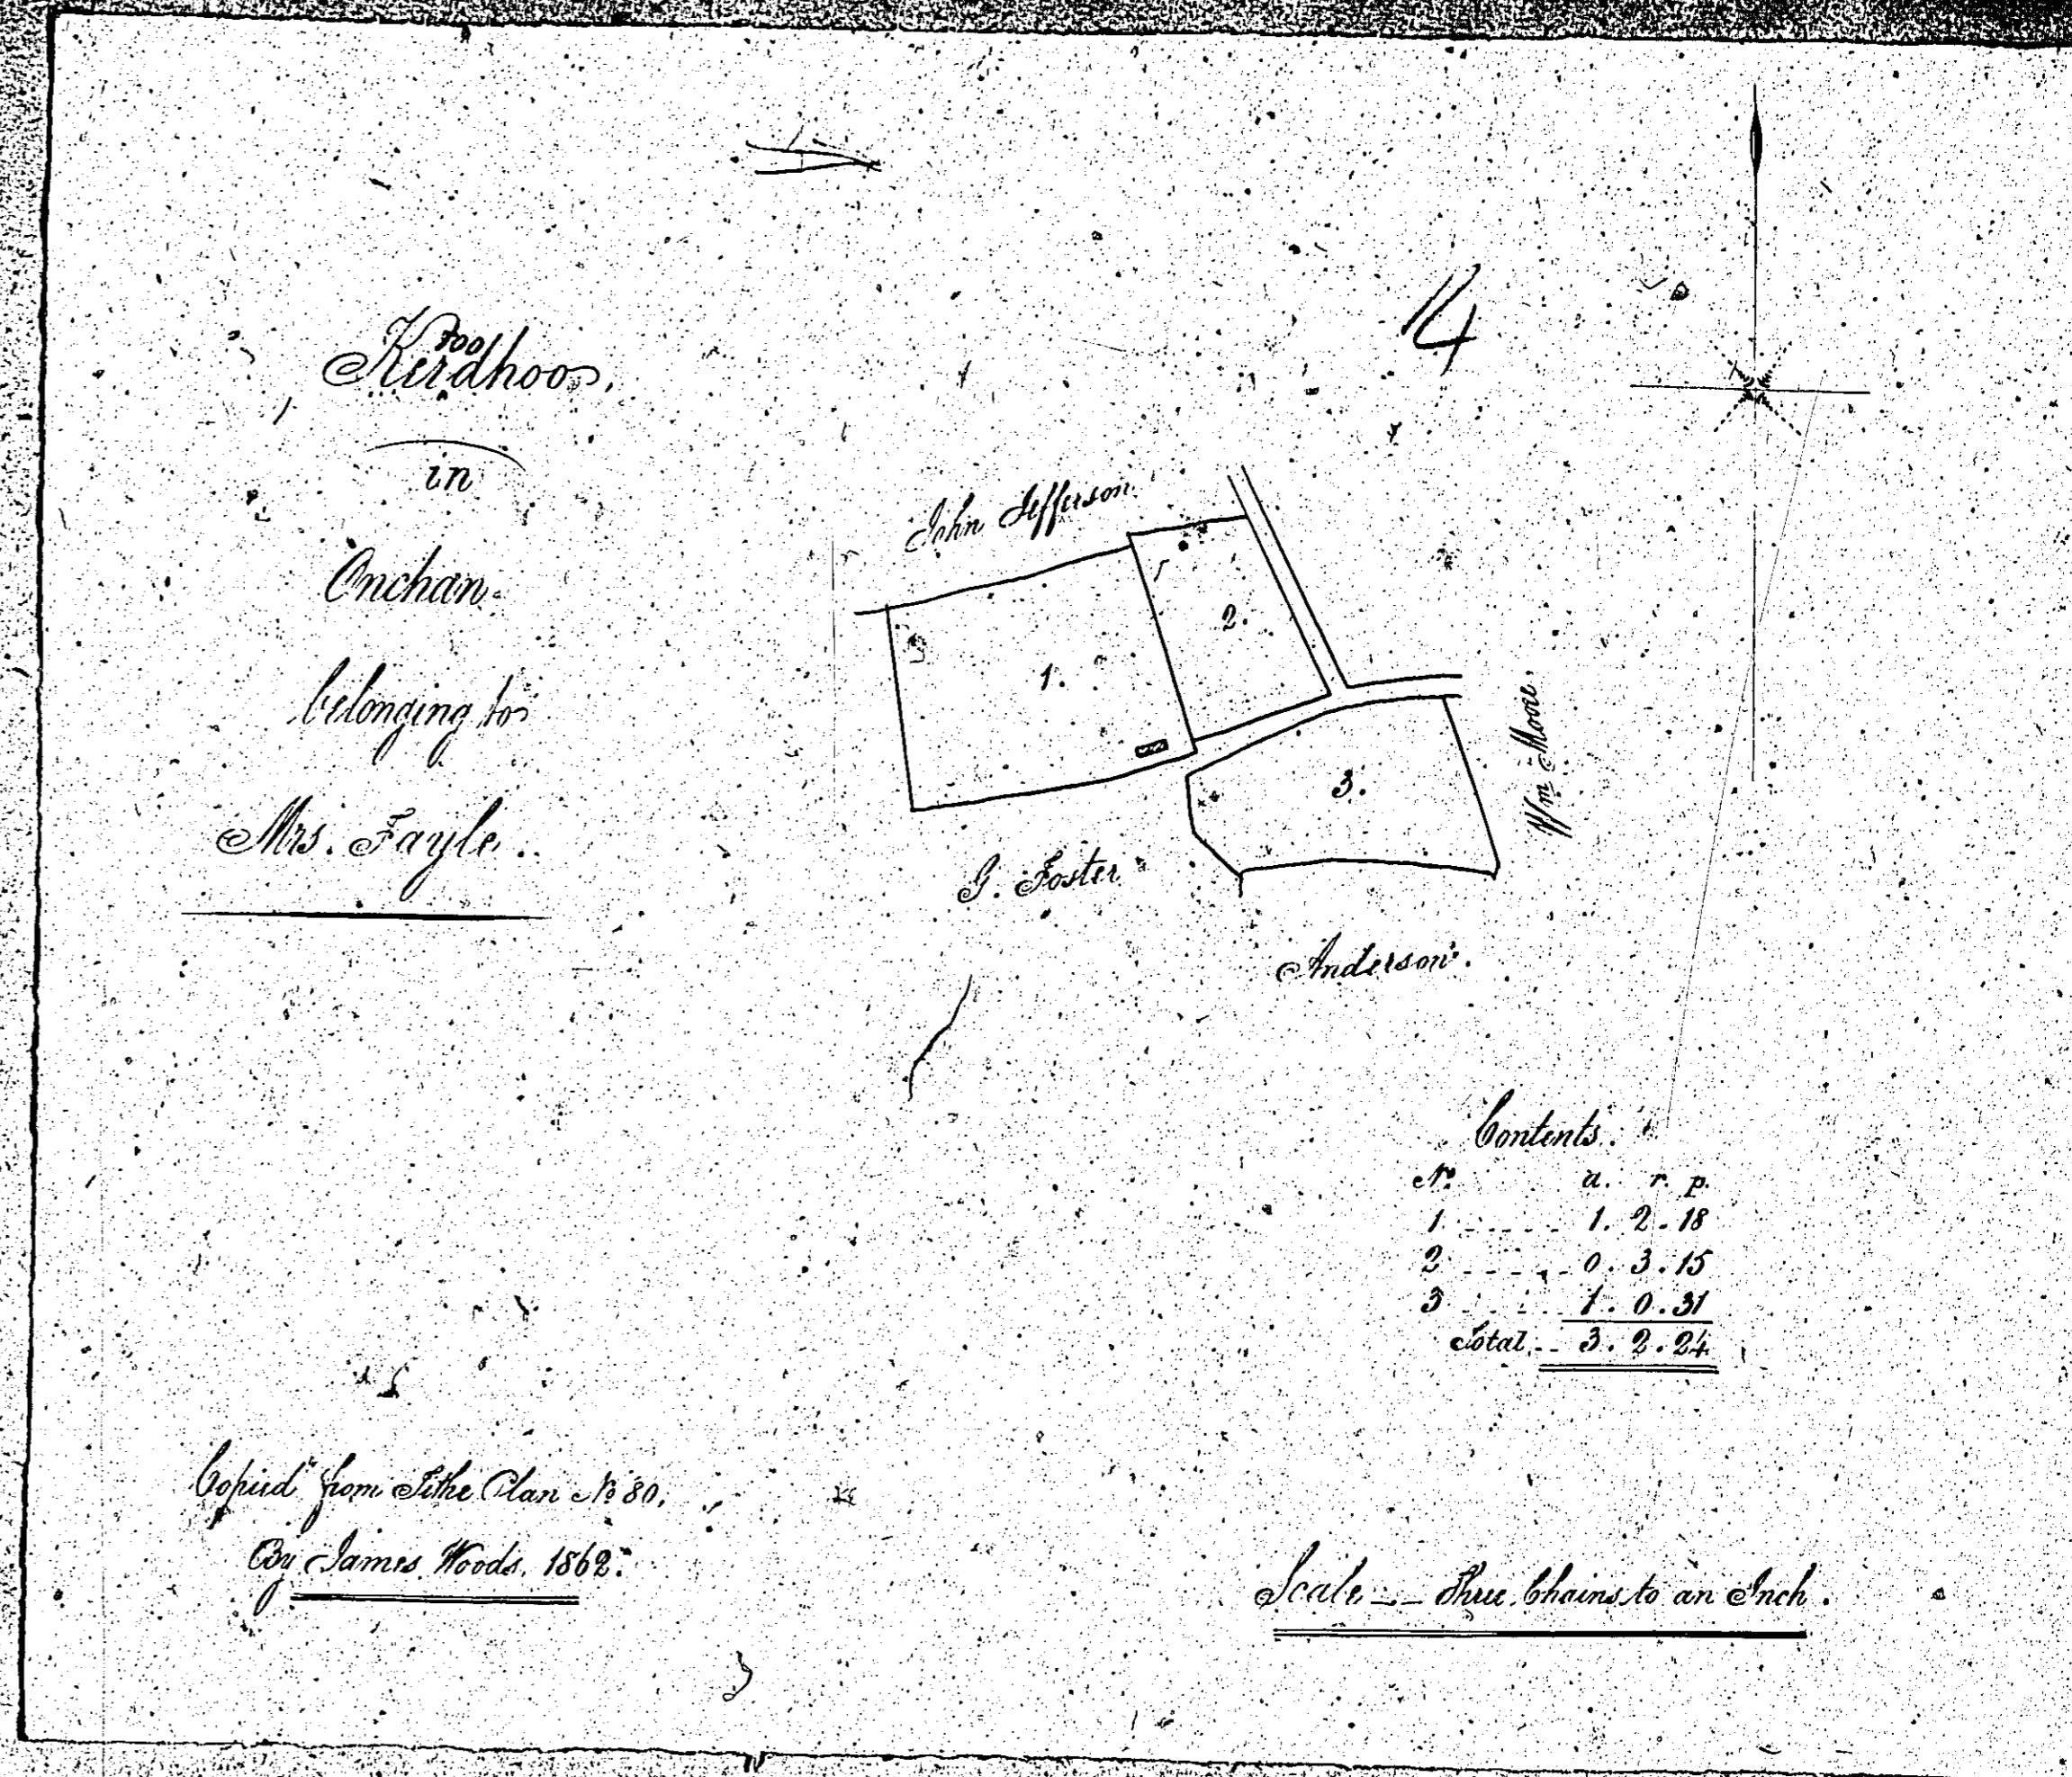 14
700
Kerdhoo,
in
Onchan.
belonging to
Mrs. Fayle.
John Jefferson
1.
2.
3.
Wm Moore.
G. Foster
Anderson.
Contents.
No. a. r. p.
1 1. 2. 18
2 0. 3. 15
3 1. 0. 31
Total 3. 2. 24
Copied from Tithe Plan No 80.
By James Woods. 1862.
Scale -- Three Chains to an Inch.